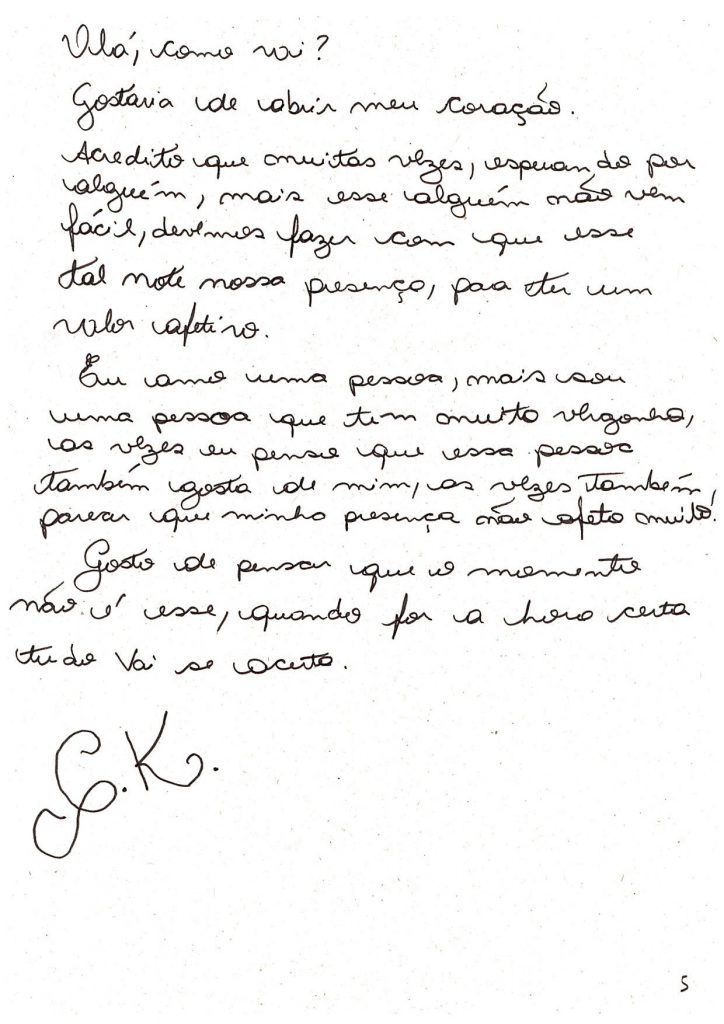 Olá, como vai?
Gostaria de abrir meu coração.
Acredito que muitas vezes, esperando por
alguém, mais esse alguém não vem
fácil, devemos fazer com que esse
tal note nossa presença, paa ter um
valor afetivo.
Eu amo uma pessoa, mais sou
uma pessoa que tem muito vergonha,
as vezes eu penso que essa pessoa
também gosta de mim, as vezes também,
parecer que minha presença não afeta muito!
Gosto de pensar que o momento
não é esse, quando for a hora certa
tudo vai se acerta.
K.
5